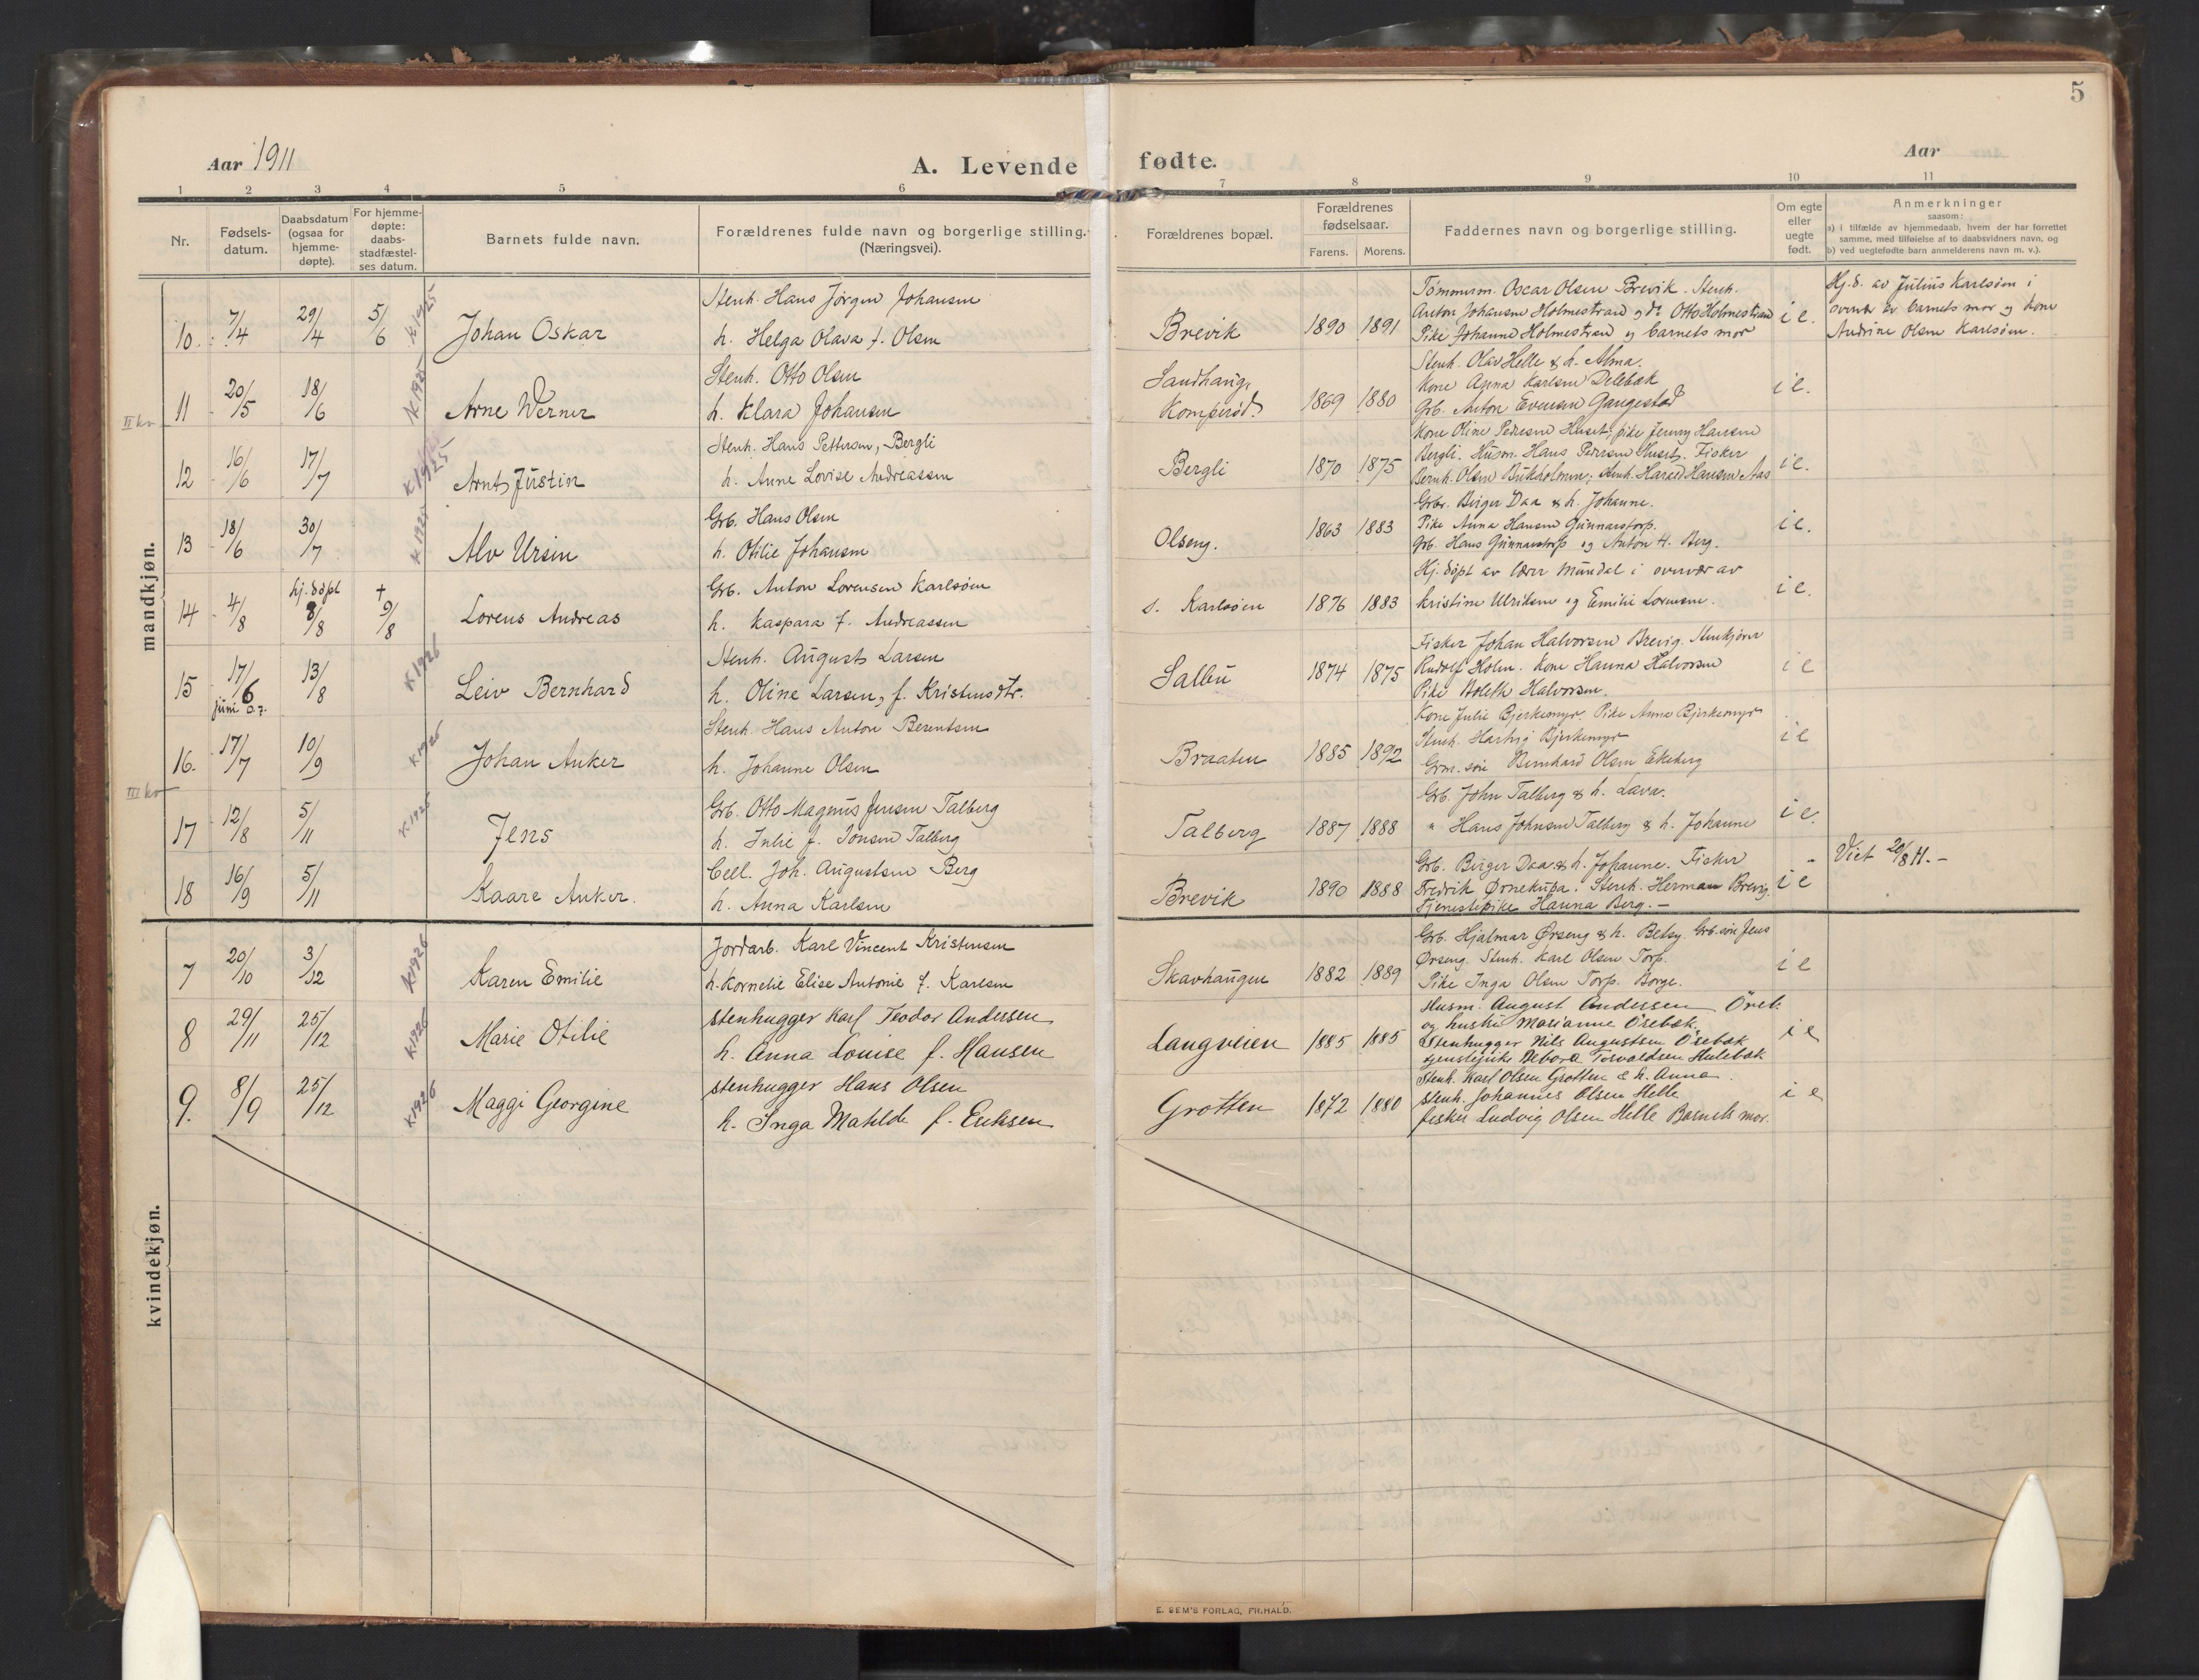 5
Aar 1911
A. Levende fødte.
Aar
1 2 3 4 5 6 7 8 9 10 11
Nr.
Fødsels-
datum.
Daabsdatum
(ogsaa for
hjemme-
døpte).
For hjemme-
døpte:
daabs-
stadfæstel-
ses datum.
Barnets fulde navn.
Forældrenes fulde navn og borgerlige stilling.
(Næringsvei).
Forældrenes bopæl.
Forældrenes
fødselsaar.
Farens. Morens.
Faddernes navn og borgerlige stilling.
Om egte
eller
uegte
født.
Anmerkninger
saasom:
a) i tilfælde av hjemmedaab, hvem der har forrettet
samme, med tilføielse af to daabsvidners navn, og
b) ved uegtefødte barn anmelderens navn m. v.).
mandkjøn.
10. 7/4 29/4 5/6 K 1925
Johan Oskar
Stenh. Hans Jørgen Johansen
h. Helga Olava f. Olsen
Brevik
1890 1891
Tømmerm. Oscar Olsen Brevik. Stenh.
Anton Johansen Holmestrand og do Otto Holmestrand
Pike Johanne Holmestrand og barnets mor
i e.
Hj.d. av Julius Karlsøen i
overvær av barnets mor og kone
Andrine Olsen Karlsøen.
11 20/5 18/6 K 1925
Arne Werner
Stenh. Otto Olsen
h. Klara Johansen
Sandhaug,
Komperød.
1869 1880
Stenh. Olav Helle & h. Alma.
Kone Anna Karlsen Delebæk
Grb. Anton Evensen Gangestad
i e.
II kv
12 16/6 17/7 K 1925
Arnt Justin
Stenh. Hans Pettersen, Bergli
h. Anne Lovise Andreassen
Bergli
1870 1875
Kone Oline Pedersen Huset, pike Jenny Hansen
Bergli. Husm. Hans Pedersen Huset. Fisker
Bernh. Olsen Bukholmen; stenh. Harald Hansen Aas
i e.
13 18/6 30/7 K 1925
Alv Ursin
Grb. Hans Olsen
h. Otilie Johansen
Olseng.
1863 1883
Grbr. Birger Daa & h. Johanne.
Pike Anna Hansen Gunnarstorp.
Grb. Hans Gunnarstorp og Anton H. Berg.
i e.
14 4/8 hj. døpt 8/8 + 9/8
Lorens Andreas
Grb. Anton Lorensen Karlsøen
h. Kaspara f. Andreassen
s. Karlsøen
1876 1883
Hj. døpt av lærer Mundal i overvær av
Kristine Ulriksen og Emilie Lorensen.
i e.
15 17/6 juni 13/8 K 1926
Leiv Bernhard
Stenh. August Larsen
h. Oline Larsen, f. Kristensdtr.
Salbu
1874 1875
Fisker Johan Halvorsen Brevig. Stenkjører
Rudolf Holm. Kone Hanna Halvorsen
Pike Boleth Halvorsen.
i e
16. 17/7 10/9 K 1926
Johan Anker
Stenh. Hans Anton Berentsen
h. Johanne Olsen
Braaten
1885 1892
Kone Julie Bjerkemyr. Pike Anna Bjerkemyr
Stenh. Hartvig Bjerkemyr
Grm. søn Bernhard Olsen Ekeberg
i e
III kv
17 12/8 5/11 K 1926
Jens
Grb. Otto Magnus Jensen Talberg
h. Julie f. Jonsen Talberg
Talberg
1887 1888
Grb. John Talberg & h. Lava.
" Hans Johnsen Talberg & h. Johanne
i e.
18 16/9 5/11
Kaare Anker.
Cell. Joh. Augustsen Berg
h. Anna Karlsen
Brevik
1890 1888
Grb. Birger Daa & h. Johanne. Fisker
Fredrik Ørnekupa. Stenh. Herman Brevig.
Tjenestepike Hanna Berg. —
i e
Viet 20/8 11. —
kvindekjøn.
7 20/10 3/12 K 1926
Karen Emilie
Jordarb. Karl Vincent Kristensen
h. Kornelie Elise Antonie f. Karlsen
Skavhaugen
1882 1889
Grb. Hjalmar Ørseng & h. Betsy. Grb. søn Jens
Ørseng. Stenh. Karl Olsen Torp.
Pike Inga Olsen Torp. Borge.
i e
8 29/11 25/12 K 1926
Marie Otilie
stenhugger Karl Teodor Andersen
h. Anna Louise f. Hansen
Langveien
1885 1885
Husm. August Andersen Öreb.
og hustru Marianne Örebæk.
Stenhugger Nils Augustsen Örebæk
tjenstepike Debora Torvaldsen Hulebæk
i e
9. 8/9 25/12 K 1926
Maggi Georgine
stenhugger Hans Olsen
h. Inga Matilde f. Eriksen
Grotten
1872 1880
Stenh. Karl Olsen Grotten & h. Anna.
stenh. Johannes Olsen Helle
fisker Ludvig Olsen Helle Barnets mor.
i e
E. SEM'S FORLAG, FR.HALD.